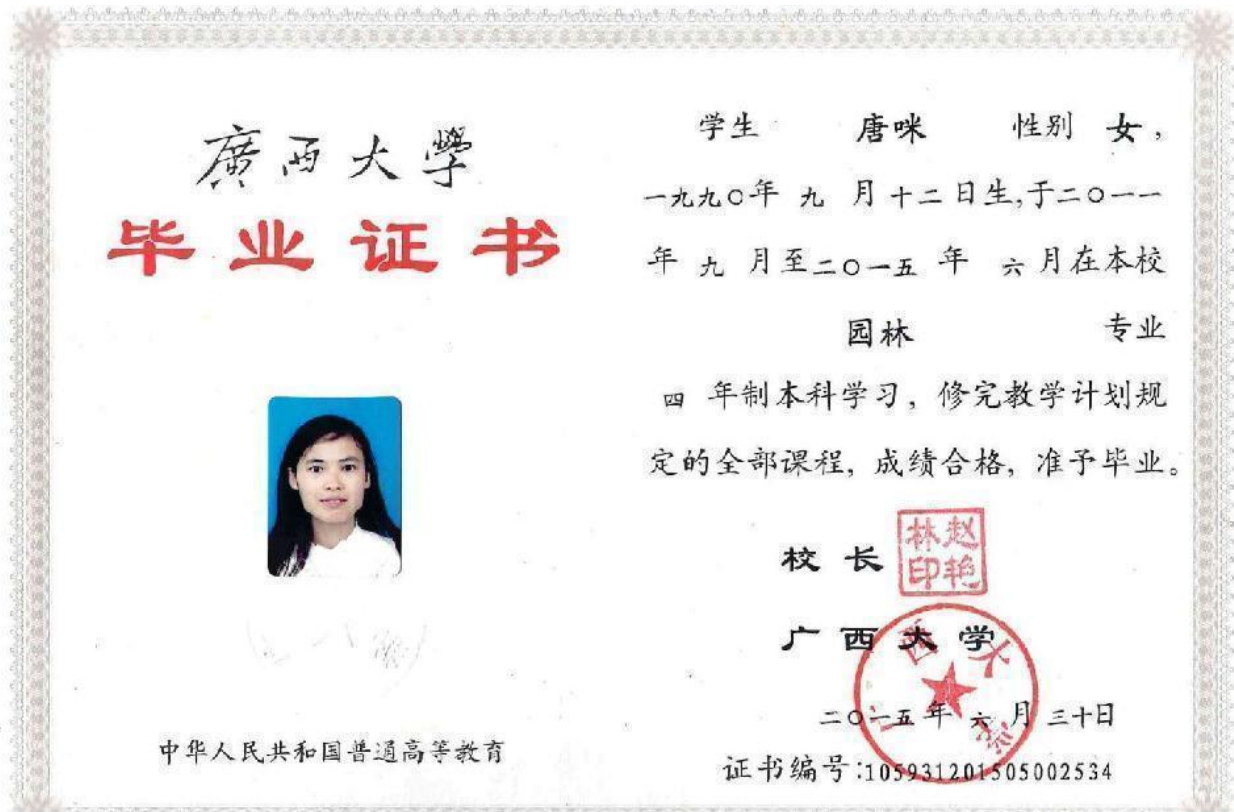 廣西大學
毕业证书
中华人民共和国普通高等教育
学生 唐咪 性别 女,
一九九〇年 九 月 十二 日生,于二〇一一
年 九 月至二〇一五 年 六 月在本校
园林 专业
四 年制本科学习, 修完教学计划规
定的全部课程, 成绩合格, 准予毕业。
校长
赵艳
林印
广西大学
广西大学
二〇一五 年 六 月 三十日
证书编号:105931201505002534